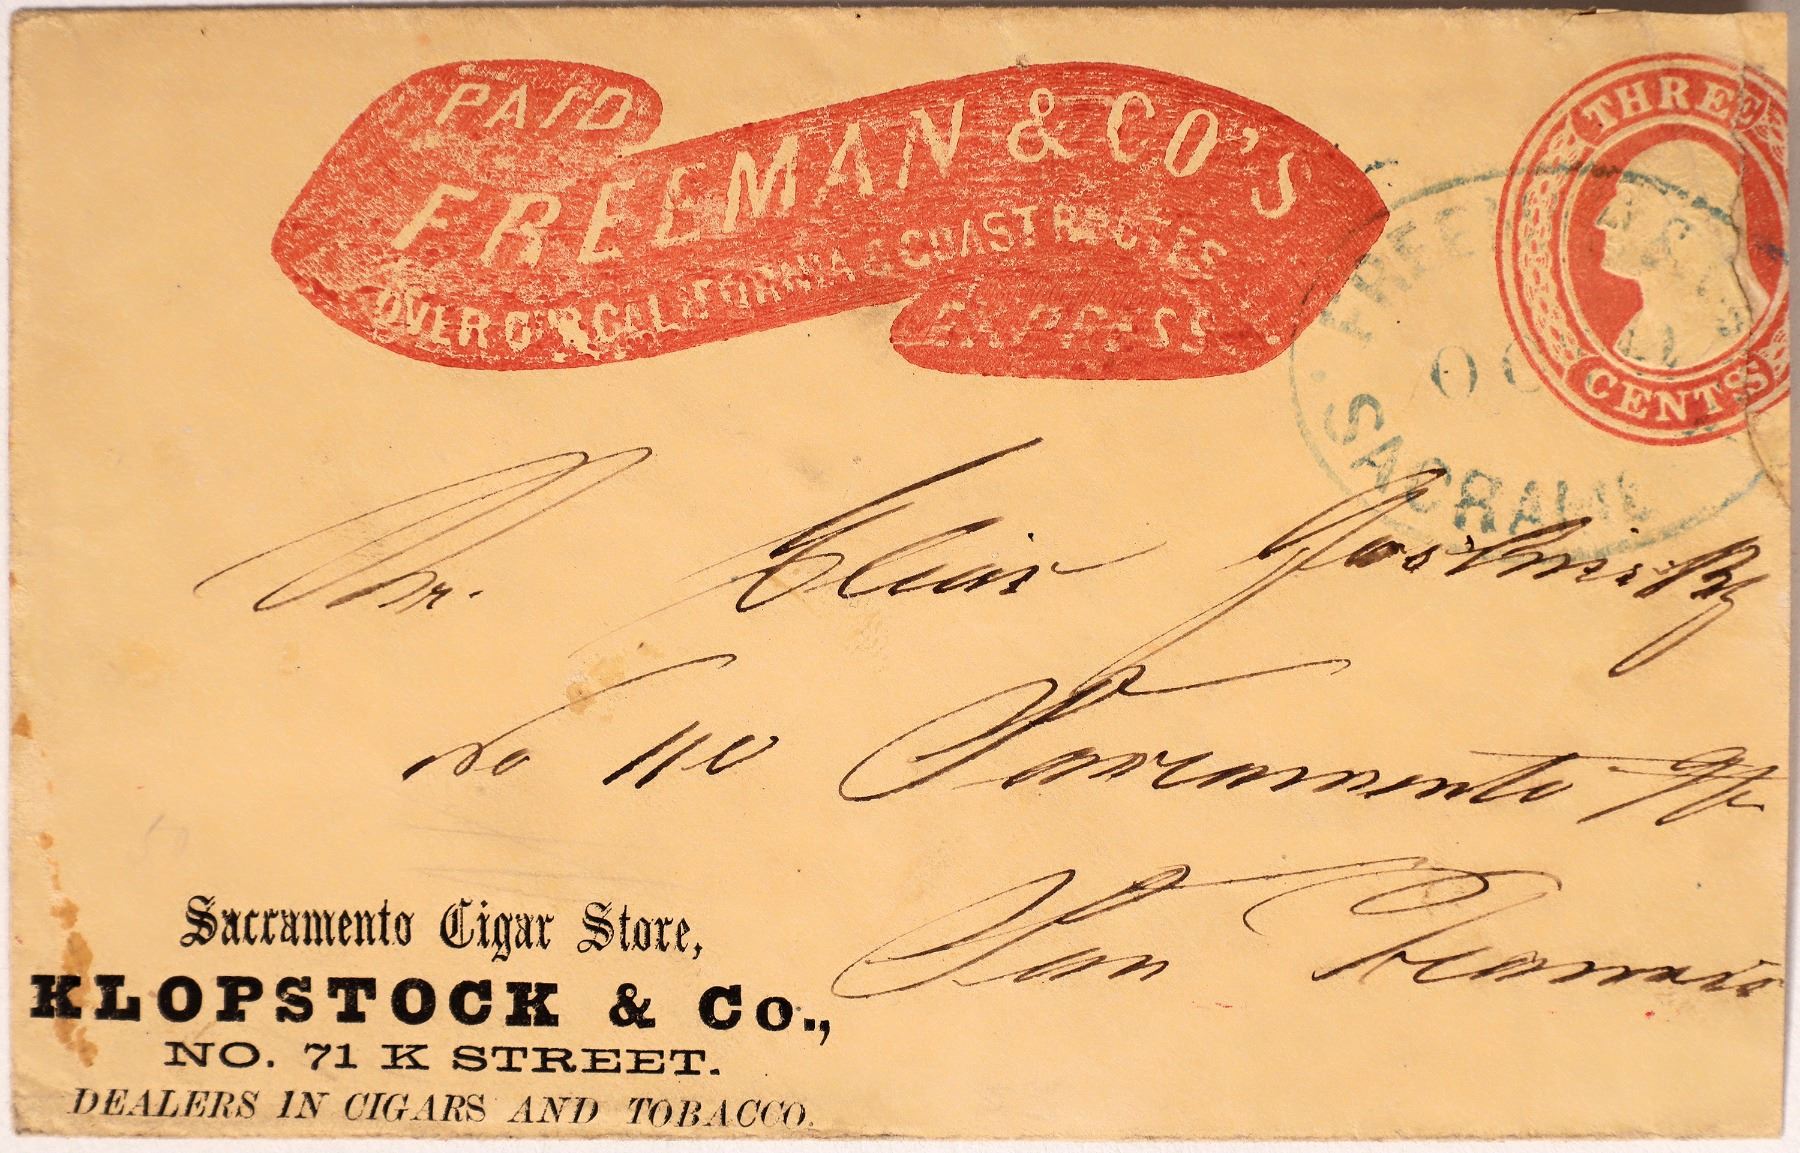 PAID
FREEMAN & CO'S
OVER O'R CALIFORNIA & COAST ROUTES
EXPRESS
THREE
CENTS
FREEM
OC
SACRAM
Mr. Elias
No 110 Sacramento St
San Francisco
Sacramento Cigar Store,
KLOPSTOCK & Co.,
NO. 71 K STREET.
DEALERS IN CIGARS AND TOBACCO.